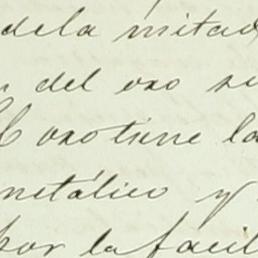 dela mitad
del oro se
oro tiene la
metálico y
por la facil